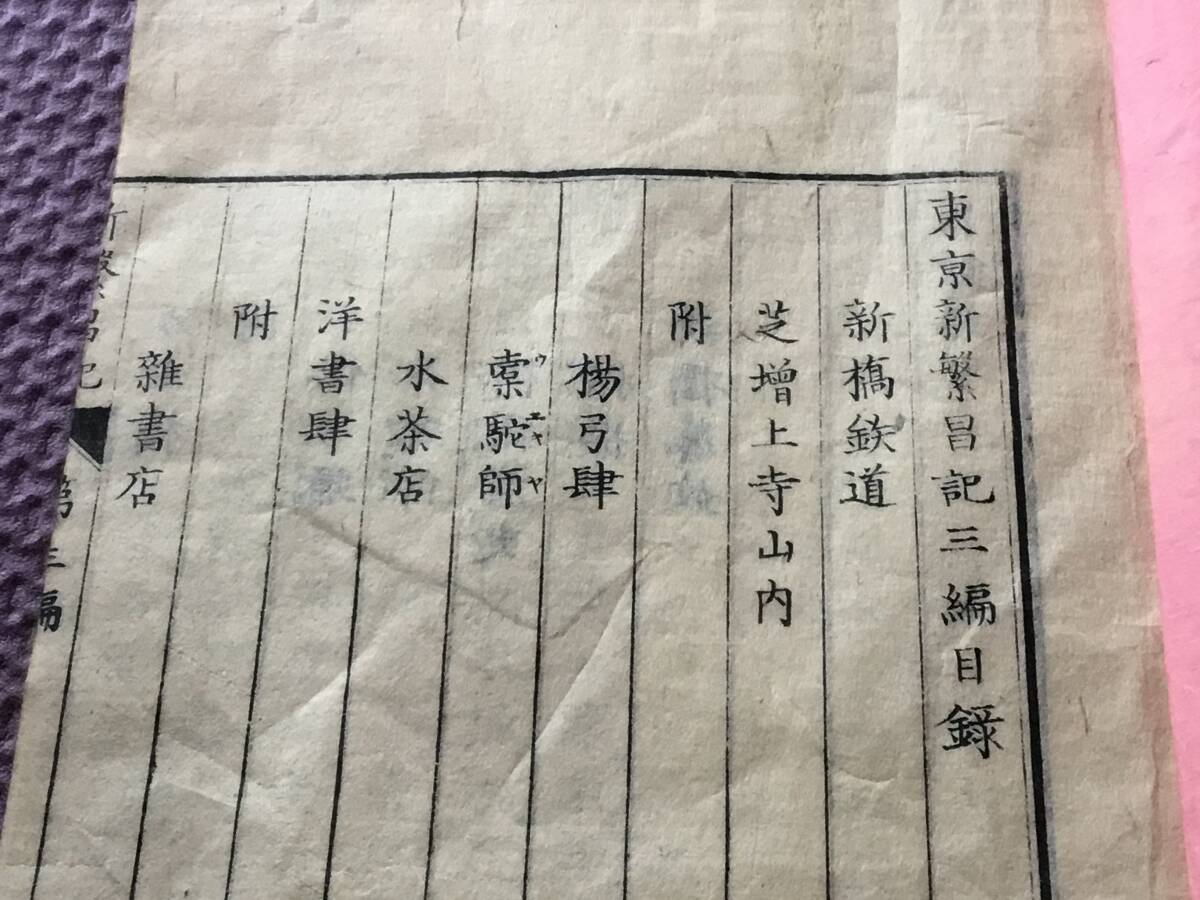 東亰新繁昌記三編目錄
新橋鉄道
芝增上寺山内
附
楊弓肆
槖駝師
ウエキヤ
水茶店
洋書肆
附
雜書店
新繁昌記 第三編